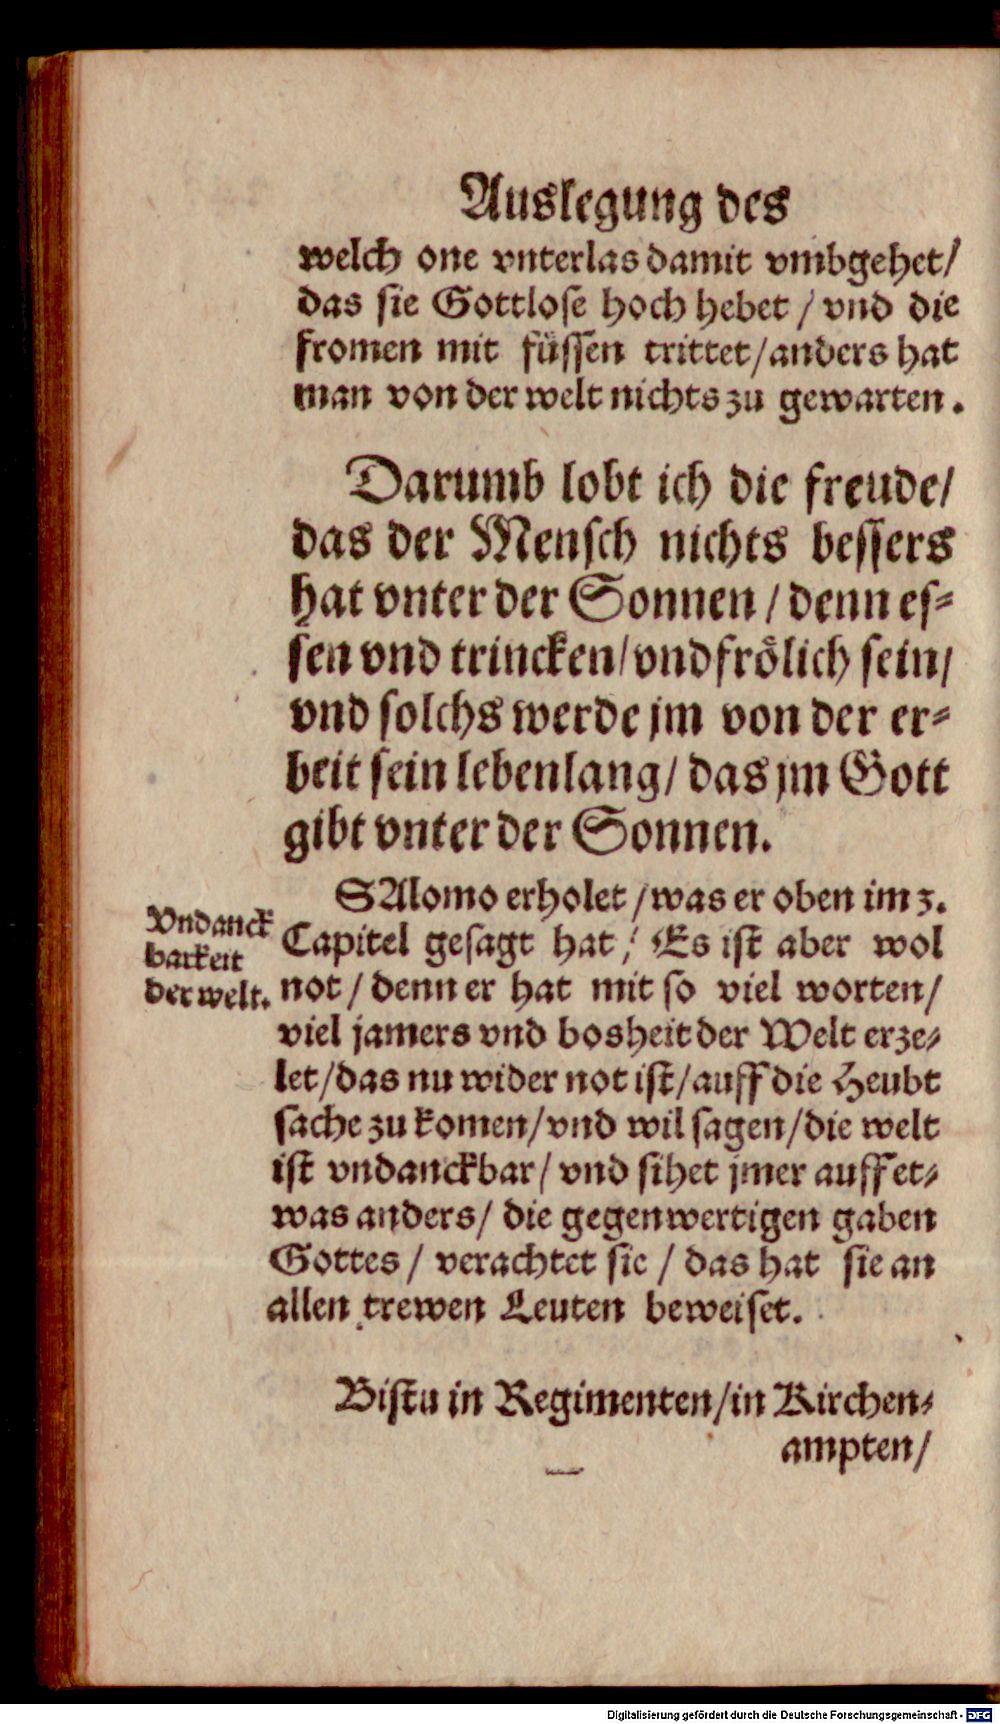 Auslegung des
welch one vnterlas damit vmbgehet/
das sie Gottlose hoch hebet / vnd die
fromen mit füssen trittet/anders hat
man von der welt nichts zu gewarten.
Darumb lobt ich die freude/
das der Mensch nichts bessers
hat vnter der Sonnen / denn es-
sen vnd trincken/vnd frölich sein/
vnd solchs werde jm von der er-
beit sein lebenlang/ das jm Gott
gibt vnter der Sonnen.
SAlomo erholet / was er oben im 3.
Vndanck
barkeit
der welt.
Capitel gesagt hat / Es ist aber wol
not / denn er hat mit so viel worten/
viel jamers vnd bosheit der Welt erze-
let/das nu wider not ist/auff die Heubt
sache zu komen/vnd wil sagen/die welt
ist vndanckbar/ vnd sihet jmer auff et-
was anders/ die gegenwertigen gaben
Gottes / verachtet sie / das hat sie an
allen trewen Leuten beweiset.
Bistu in Regimenten/in Kirchen-
ampten/
Digitalisierung gefördert durch die Deutsche Forschungsgemeinschaft - DFG